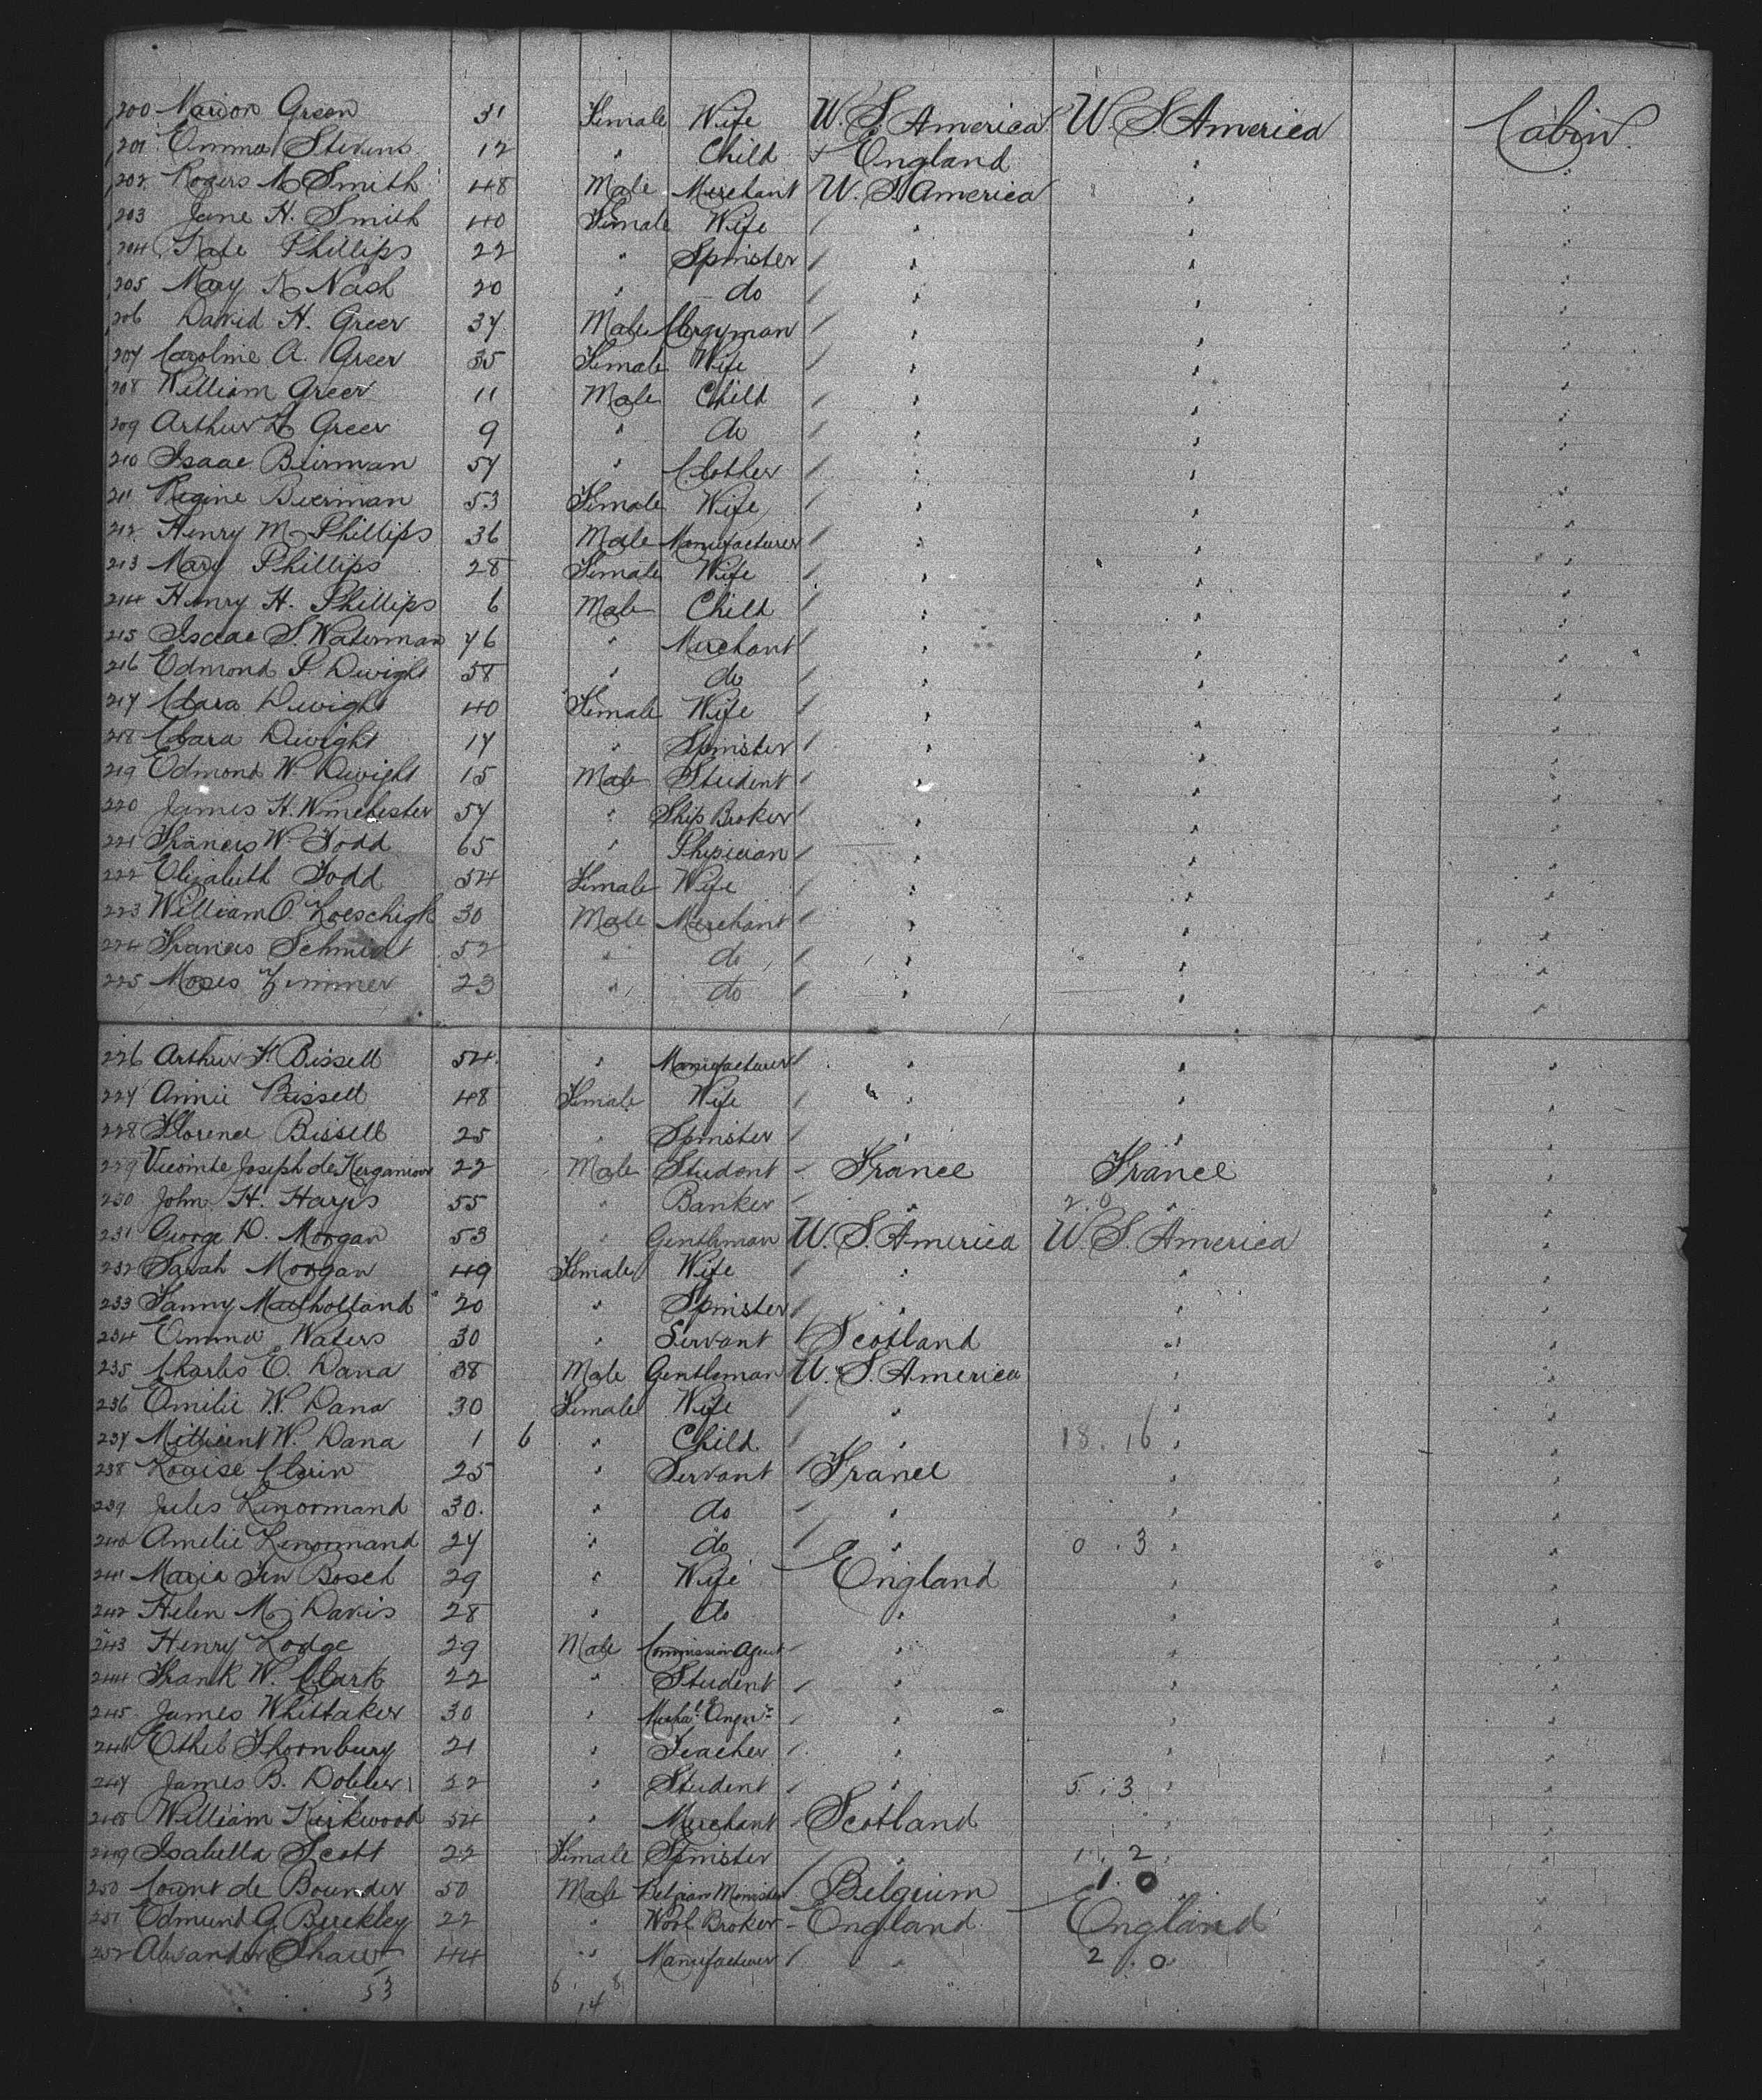 200 Marion Green 31 Female Wife U. S. America U. S. America Cabin
201 Emma Stevens 12 " Child + England "
202 Rogers M Smith 48 Male Merchant U. S. America " "
203 Jane H. Smith 40 Female Wife / " " "
204 Kate Phillips 22 " Spinster / " " "
205 Mary K Nash 20 " do / " " "
206 David H. Greer 37 Male Clergyman / " " "
207 Caroline A. Greer 35 Female Wife / " " "
208 William Greer 11 Male Child / " " "
209 Arthur L Greer 9 " do / " " "
210 Isaac Bierman 57 " Clothier / " " "
211 Regine Bierman 53 Female Wife / " " "
212 Henry M Phillips 36 Male Manufacturer / " " "
213 Mary Phillips 28 Female Wife / " " "
214 Henry H. Phillips 6 Male Child / " " "
215 Isaac S. Waterman 46 " Merchant / " " "
216 Edmond P. Dwight 58 " do / " " "
217 Clara Dwight 40 Female Wife / " " "
218 Clara Dwight 17 " Spinster / " " "
219 Edmond W. Dwight 15 Male Student / " " "
220 James H. Winchester 57 " Ship Broker / " " "
221 Francis W. Todd 65 " Physician / " " "
222 Elizabeth Todd 54 Female Wife / " " "
223 William O. Loeschigk 30 Male Merchant / " " "
224 Francis Schmidt 52 " do / " " "
225 Moses Zimmer 23 " do / " " "
226 Arthur F. Bissell 54 " Manufacturer / " " "
227 Annie Bissell 48 Female Wife / " " "
228 Florence Bissell 25 " Spinster / " " "
229 Vicomte Joseph de 22 Male Student - France France "
230 John H. Hayes 55 " Banker / " 2.0 " "
231 George D. Morgan 53 " Gentleman U. S. America U. S. America "
232 Sarah Morgan 49 Female Wife / " " "
233 Fanny Mulholland 20 " Spinster / " " "
234 Emma Waters 30 " Servant / Scotland " "
235 Charles E. Dana 38 Male Gentleman U. S. America " "
236 Emilie W. Dana 30 Female Wife / " " "
237 Millicent W. Dana 1 6 " Child / " 18.16 " "
238 Louise Clarin 25 " Servant / France " "
239 Jules Lenormand 30. " do / " " "
240 Amelie Lenormand 27 " do / " 0.3 " "
241 Maria Ten Bosch 29 " Wife England " "
242 Helen M. Davis 28 " do " " "
243 Henry Lodge 29 Male Commission Agent - " " "
244 Frank W. Clark 22 " Student / " " "
245 James Whittaker 30 " Mechal Engnr / " " "
246 Ethel Thornbury 21 " Teacher / " " "
247 James B. 22 " Student / " 5.3 " "
248 William Kirkwood 54 " Merchant Scotland " "
249 Isabella Scott 22 Female Spinster / " 1.2 " "
250 Count de Bounder 50 Male Belgian Minister / Belgium 1.0 " "
251 Edmund G. Buckley 22 " Wool Broker - England England "
252 Alexander Shaw 44 " Manufacturer / " 2.0 "
53 6 8
14